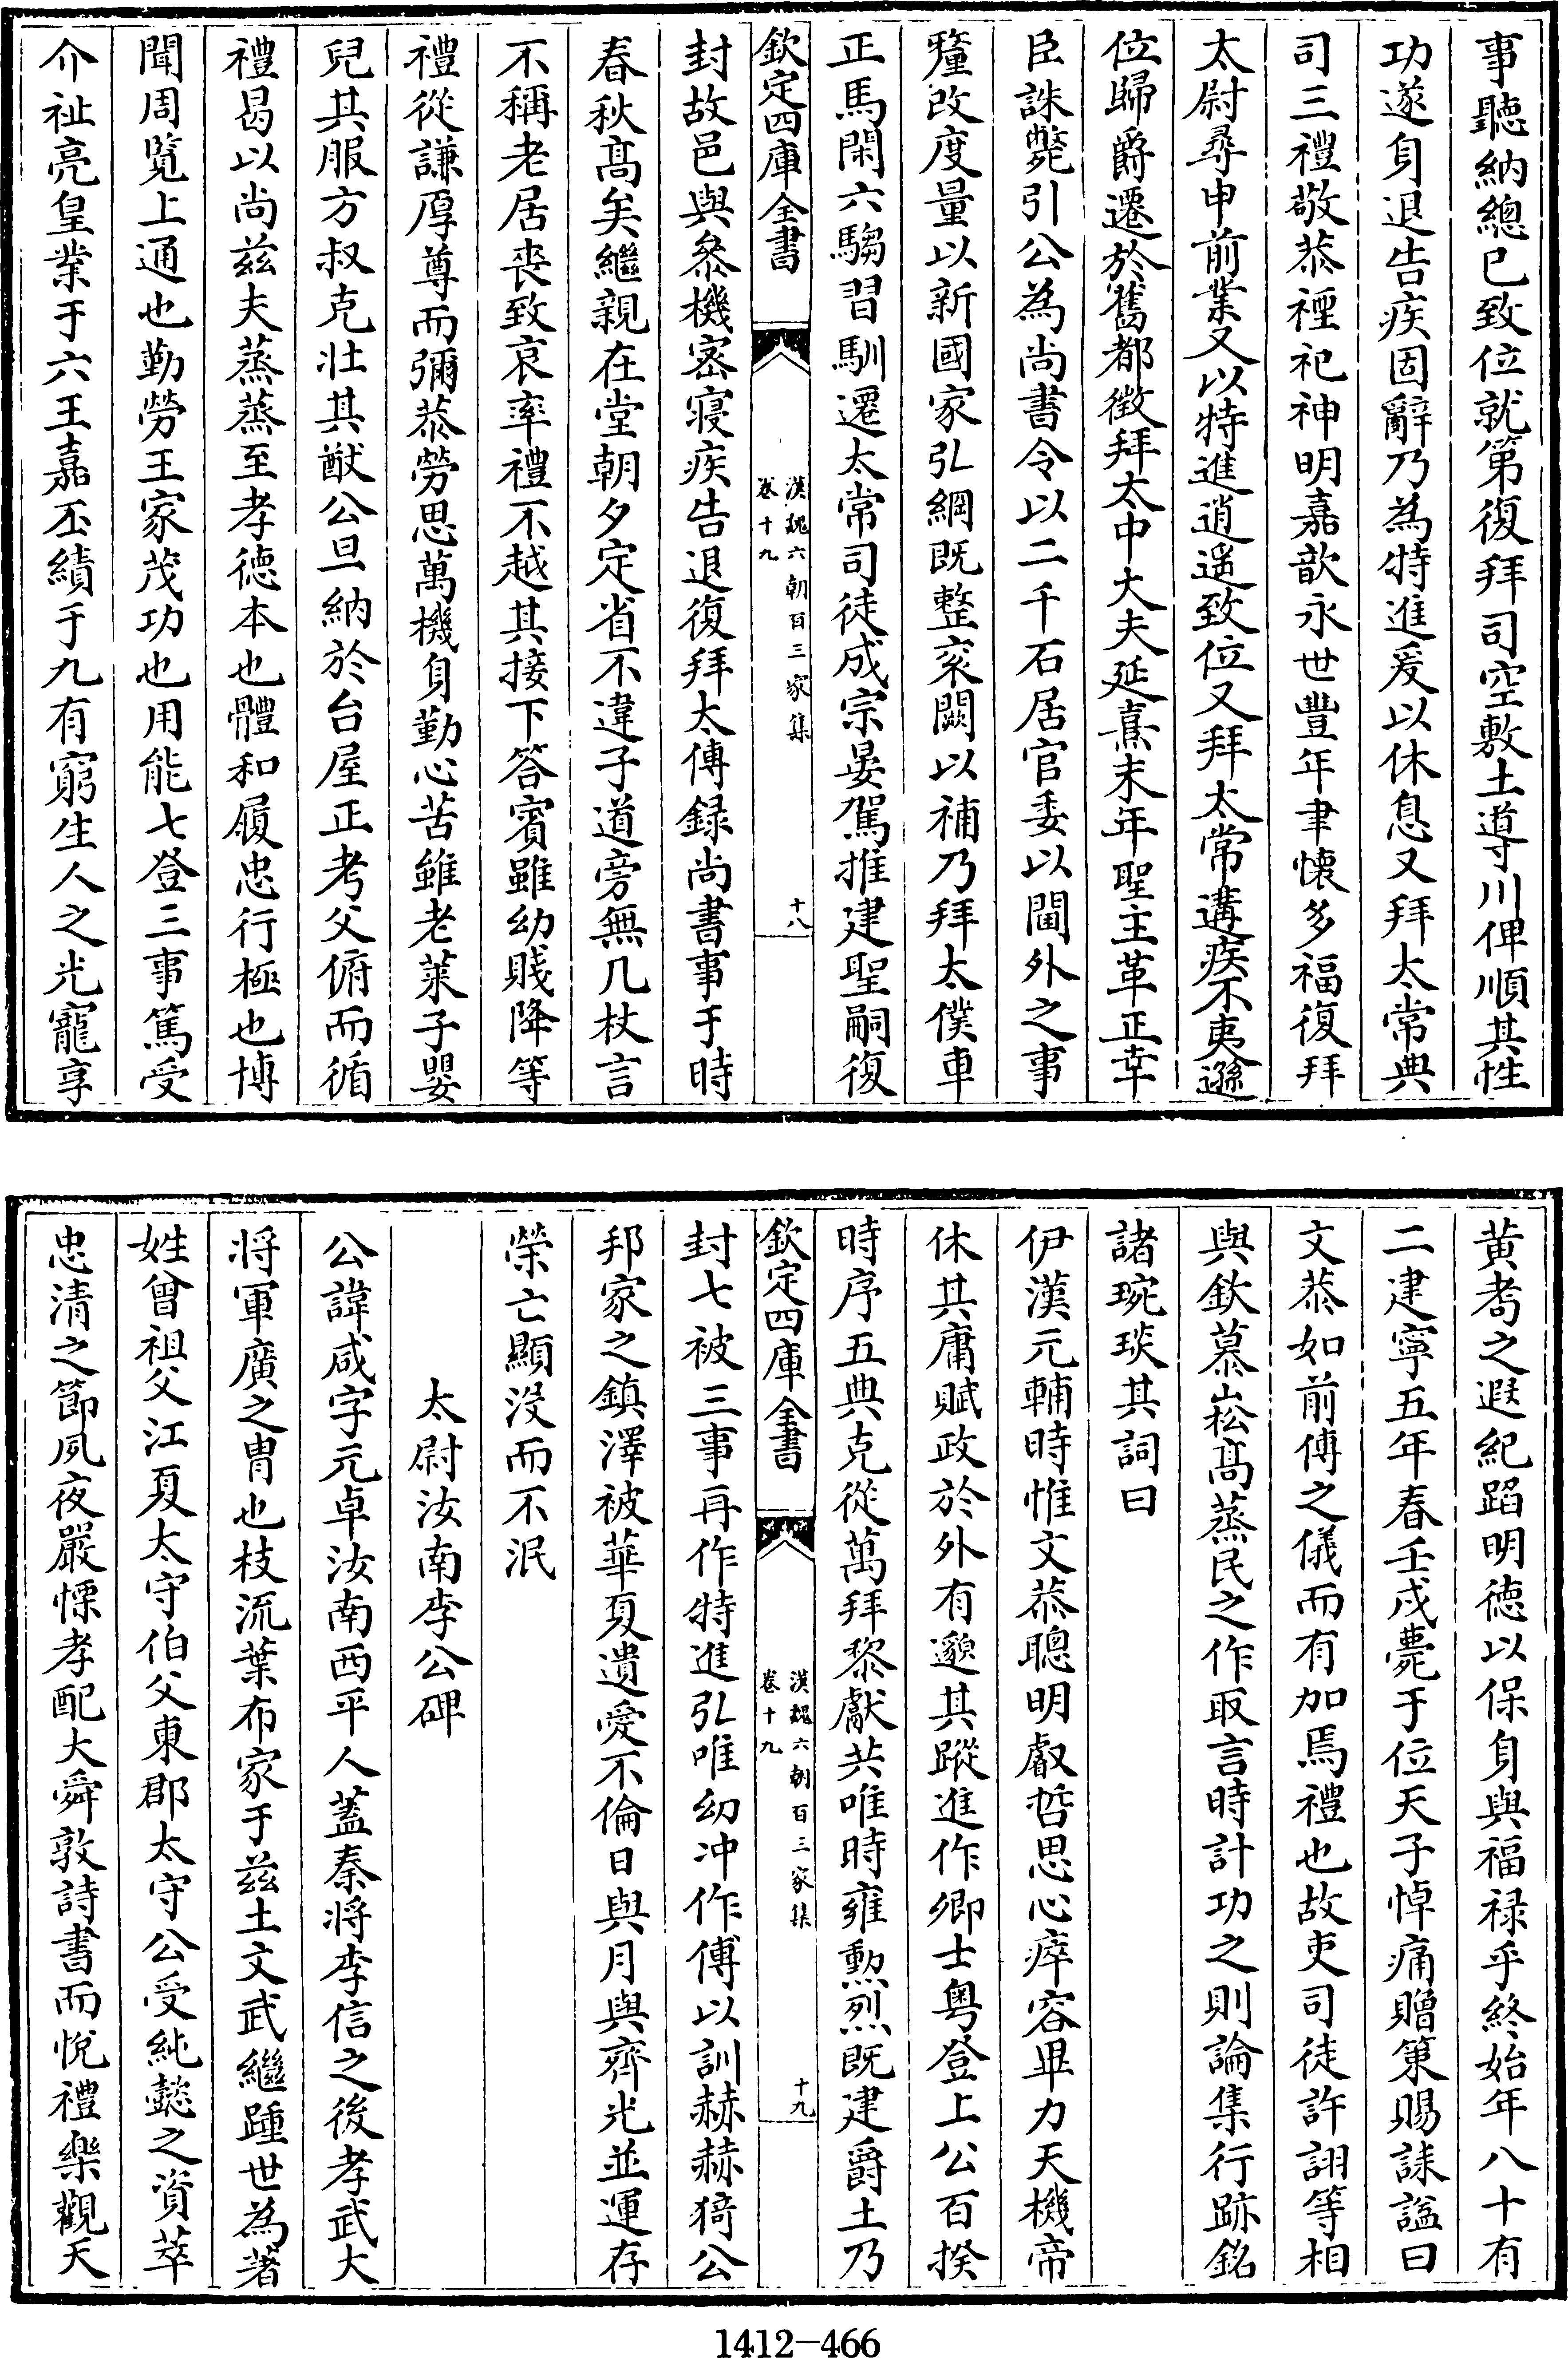 事聽納總已致位就第復拜司空敷土導川俾順其性
功遂身退告疾固辭乃為特進爰以休息又拜太常典
司三禮敬恭禋祀神明嘉歆永世豐年聿懷多福復拜
太尉尋申前業又以特進逍遥致位又拜太常遘疾不夷遜
位歸爵遷於舊都徵拜太中大夫延熹末年聖主革正幸
臣誅斃引公為尚書令以二千石居官委以閫外之事
釐改度量以新國家弘綱既整衮闕以補乃拜太僕車
正馬閑六騶習馴遷太常司徒成宗晏駕推建聖嗣復
欽定四庫全書
漢魏六朝百三家集
卷十九
十八
封故邑與叅機密寢疾告退復拜太傅録尚書事于時
春秋髙矣繼親在堂朝夕定省不違子道旁無几杖言
不稱老居喪致哀率禮不越其接下答賓雖幼賤降等
禮從謙厚尊而彌恭勞思萬機身勤心苦雖老萊子嬰
兒其服方叔克壯其猷公旦納於台屋正考父俯而循
禮曷以尚兹夫蒸蒸至孝德本也體和履忠行極也博
聞周覽上通也勤勞王家茂功也用能七登三事篤受
介祉亮皇業于六王嘉丕績于九有窮生人之光寵享
黄耇之遐紀蹈明德以保身與福禄乎終始年八十有
二建寧五年春壬戌薨于位天子悼痛贈策賜誄謚曰
文恭如前傅之儀而有加焉禮也故吏司徒許詡等相
與欽慕崧髙蒸民之作取言時計功之則論集行跡銘
諸琬琰其詞曰
伊漢元輔時惟文恭聰明叡哲思心瘁容畢力天機帝
休其庸賦政於外有邈其蹤進作卿士粤登上公百揆
時序五典克從萬拜黎獻共唯時雍勲烈既建爵土乃
欽定四庫全書
漢魏六朝百三家集
卷十九
十九
封七被三事再作特進弘唯幼冲作傅以訓赫赫猗公
邦家之鎮澤被華夏遺愛不倫日與月與齊光並運存
榮亡顯没而不泯
太尉汝南李公碑
公諱咸字元卓汝南西平人蓋秦將李信之後孝武大
將軍廣之胄也枝流葉布家于兹土文武繼踵世為著
姓曾祖父江夏太守伯父東郡太守公受純懿之資萃
忠清之節夙夜嚴慄孝配大舜敦詩書而悅禮樂觀天
1412-466